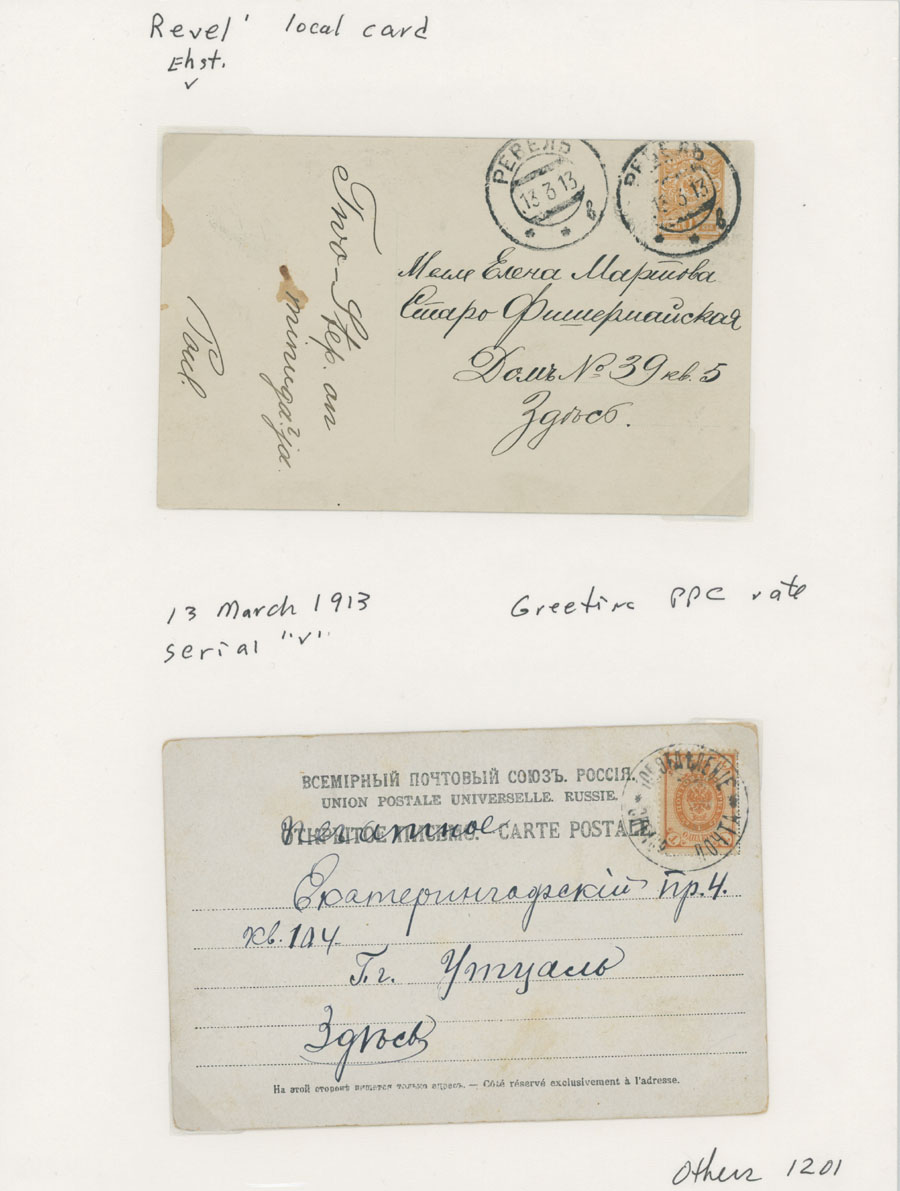 Revel' local card
Ehst.
v
РЕВЕЛЬ
13 3 13
в
РЕВЕЛЬ
13 3 13
в
Елена Мартова
Старо Фишермайская
Домъ № 39 кв. 5
Здѣсь.
Two-Step. on
13 March 1913
serial "v"
Greeting PPC rate
ВСЕМІРНЫЙ ПОЧТОВЫЙ СОЮЗЪ. РОССІЯ.
UNION POSTALE UNIVERSELLE. RUSSIE.
печатное
ОТКРЫТОЕ ПИСЬМО. CARTE POSTALE
ОТДѢЛЕНІЕ
ПОЧТ
Екатерингофскій пр. 4.
кв. 104.
Гг. Утцаль
Здѣсь
На этой сторонѣ пишется только адресъ. — Côté réservé exclusivement à l'adresse.
Others 1201